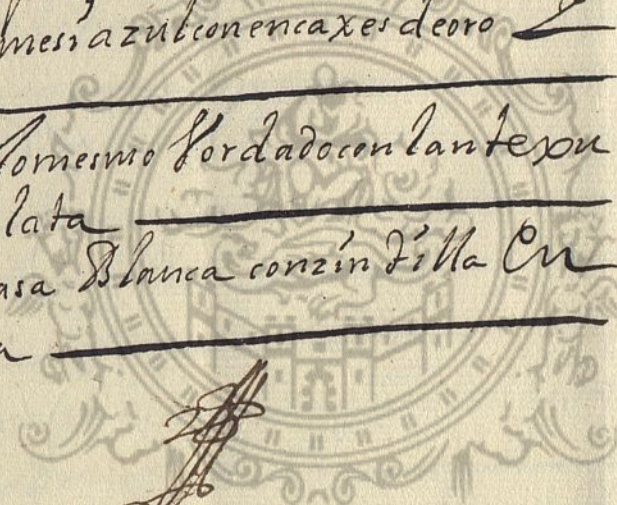 mesi azul con encaxes de oro
lo mesmo Vordado con lantexu
lata
asa Blanca con zintilla En
a